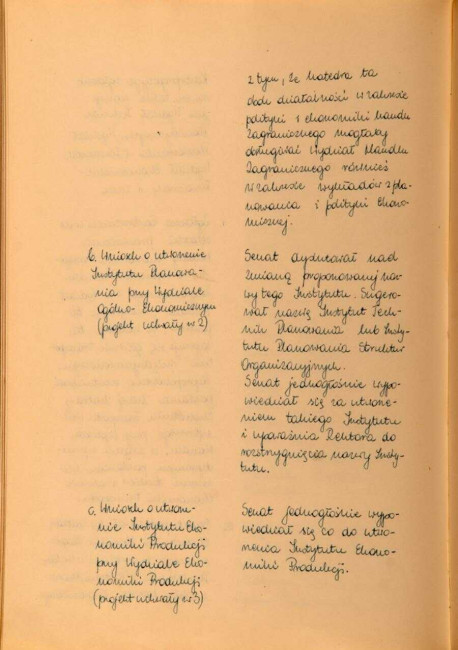 z tym, że katedra ta
obok działalności w zakresie
polityki i ekonomiki handlu
zagranicznego mogłaby
obsługiwać Wydział Handlu
Zagranicznego również
w zakresie wykładów z pla-
nowania i polityki Ekono-
micznej.
b. Wniosek o utworzenie
Instytutu Planowa-
nia przy Wydziale
Ogólno-Ekonomicznym
(projekt uchwały nr 2)
Senat dyskutował nad
zmianą proponowanej naz-
wy tego Instytutu. Sugero-
wał nazwę Instytut Tech-
niki Planowania lub Insty-
tutu Planowania Struktur
Organizacyjnych.
Senat jednogłośnie wypo-
wiedział się za utworze-
niem takiego Instytutu
i upoważnia Rektora do
rozstrzygnięcia nazwy Insty-
tutu.
c. Wniosek o utworze-
nie Instytutu Eko-
nomiki Produkcji
przy Wydziale Eko-
nomiki Produkcji
(projekt uchwały nr 3)
Senat jednogłośnie wypo-
wiedział się co do utwo-
rzenia Instytutu Ekono-
miki Produkcji.